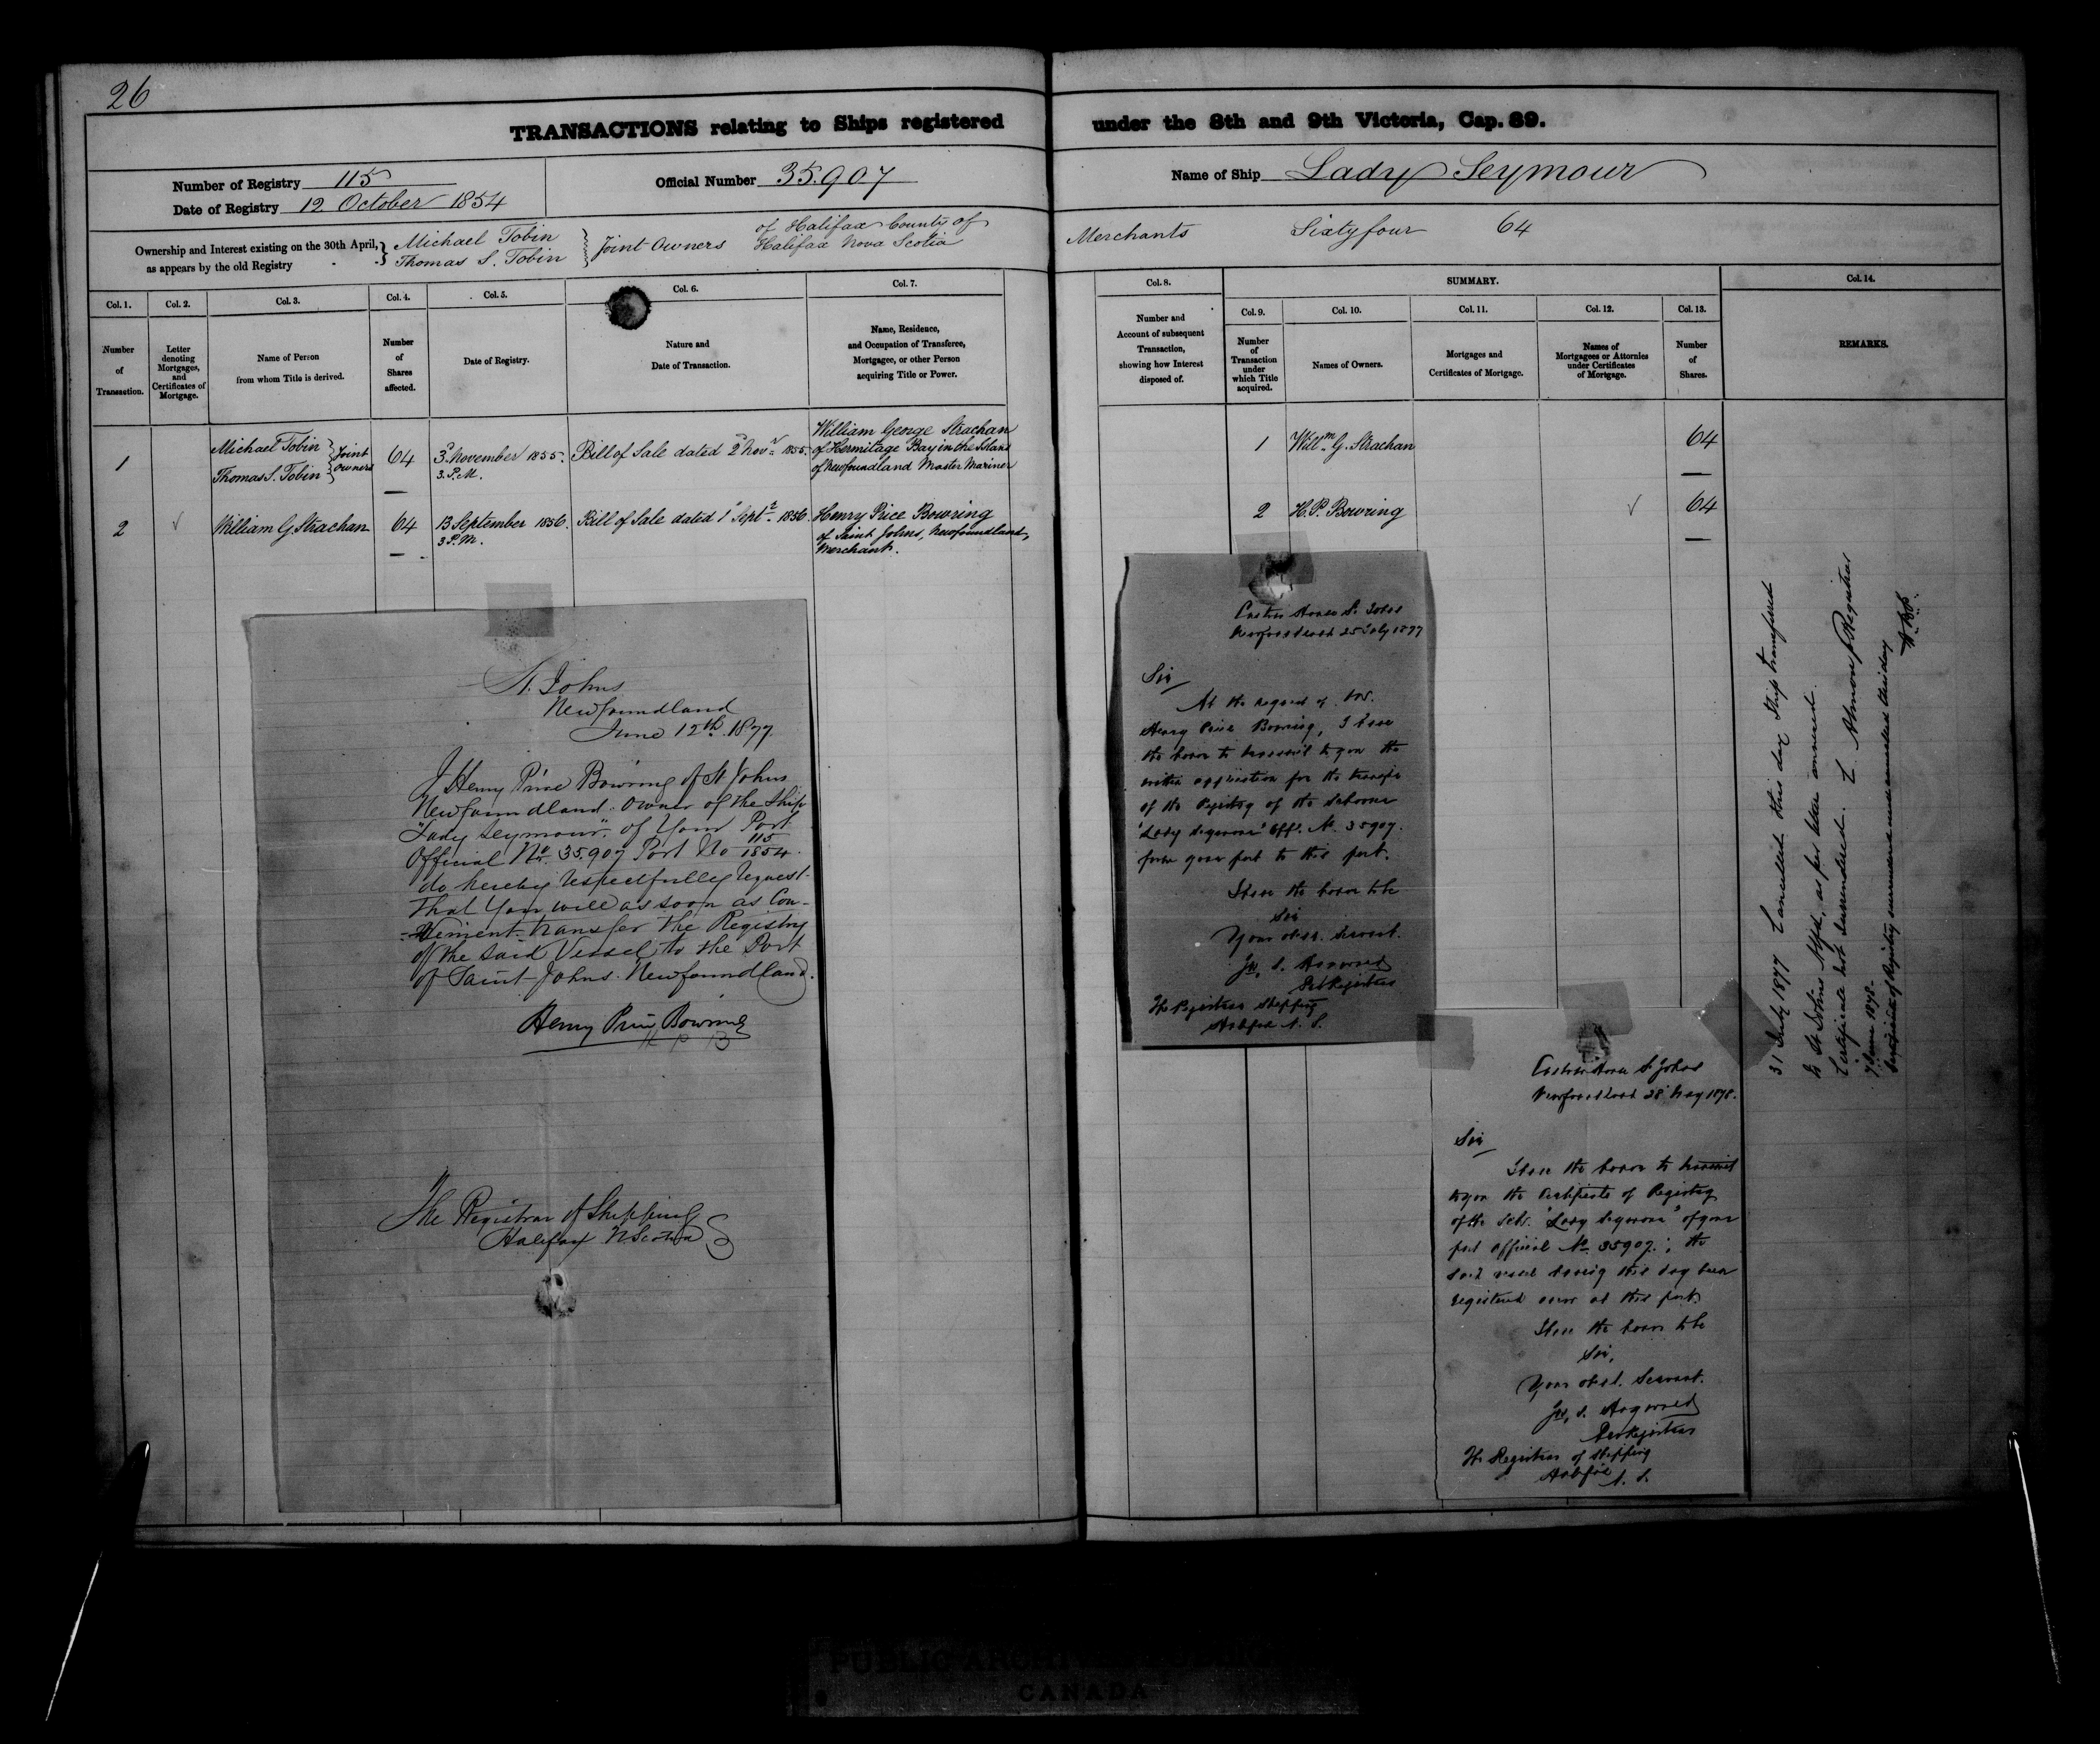 26
TRANSACTIONS relating to Ships registered under the 8th and 9th Victoria, Cap. 89.
Number of Registry 115
Date of Registry 12 October 1854
Official Number 35.907
Name of Ship Lady Seymour
Ownership and Interest existing on the 30th April, as appears by the old Registry
Michael Tobin
Thomas S. Tobin
Joint Owners
of Halifax County of
Halifax Nova Scotia
Merchants Sixty four 64
Col. 1.
Number of Transaction.
Col. 2.
Letter denoting Mortgages, and Certificates of Mortgage.
Col. 3.
Name of Person from whom Title is derived.
Col. 4.
Number of Shares affected.
Col. 5.
Date of Registry.
Col. 6.
Nature and Date of Transaction.
Col. 7.
Name, Residence, and Occupation of Transferee, Mortgagee, or other Person acquiring Title or Power.
Col. 8.
Number and Account of subsequent Transaction, showing how Interest disposed of.
SUMMARY.
Col. 9.
Number of Transaction under which Title acquired.
Col. 10.
Names of Owners.
Col. 11.
Mortgages and Certificates of Mortgage.
Col. 12.
Names of Mortgagees or Attornies under Certificates of Mortgage.
Col. 13.
Number of Shares.
Col. 14.
REMARKS.
1
Michael Tobin
Thomas S. Tobin
Joint Owners
64
3 November 1855.
3. P.M.
Bill of Sale dated 2 Novr 1855.
William George Strachan
of Hermitage Bay in the Island
of Newfoundland Master Mariner
1 Willm G. Strachan 64
2 ✓ William G. Strachan 64
13 September 1856.
3 P.M.
Bill of Sale dated 1 Septr 1856
Henry Price Bowring
of Saint Johns, Newfoundland,
Merchant.
2 H. P. Bowring ✓ 64
St. Johns
Newfoundland
June 12th 1877
I Henry Price Bowring of St. Johns
Newfoundland. Owner of the Ship
"Lady Seymour" of Your Port
Official No. 35.907 Port No 115/1854.
do hereby respectfully request
that You will as soon as Con-
-venient transfer the Registry
of the said Vessel to the Port
of Saint Johns. Newfoundland.
Henry Price Bowring
H P B
The Registrar of Shipping
Halifax N. Scotia
Custom House St. Johns
Newfoundland 25 July 1877
Sir
At the request of Mr.
Henry Price Bowring, I have
the honor to transmit to you the
within application for the transfer
of the Registry of the Schooner
"Lady Seymour" Offl. No. 35907.
from your port to this port.
I have the honor to be
Sir
Your obedt. Servant.
The Registrar Shipping
Halifax N. S.
Custom House St. Johns
Newfoundland 28 May 1878.
Sir
I have the honor to transmit
to you the Certificate of Registry
of the Schr. "Lady Seymour" of your
port official No. 35907.; the
said vessel having this day been
registered anew at this port.
I have the honor to be
Sir,
Your obedt. Servant.
The Registrar of Shipping
Halifax N. S.
31 July 1877 Cancelled this day Ship transferred
to St Johns Nfld, as per letter annexed.
Certificate not surrendered. L. Almon p Registrar
7 June 1878.
Certificate of Registry surrendered and cancelled this day
PUBLIC ARCHIVES
CANADA